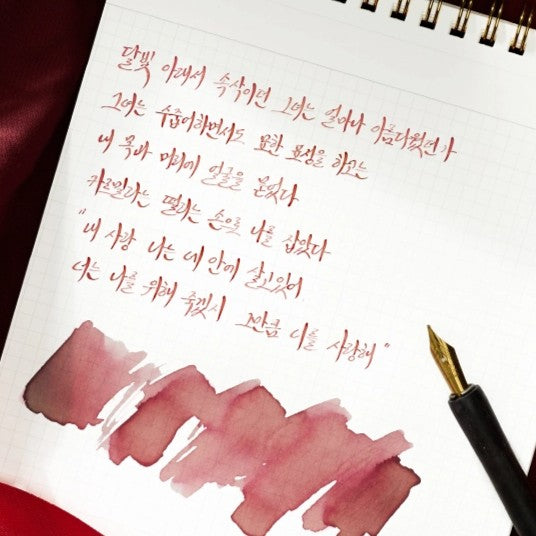 달빛 아래서 속삭이던 그녀는 얼마나 아름다웠던가
그녀는 수줍어하면서도 묘한 표정을 하고는
내 목과 머리에 얼굴을 묻었다
카르밀라는 떨리는 손으로 나를 잡았다
"내 사랑 나는 네 안에 살고있어
너는 나를 위해 죽겠지 그만큼 너를 사랑해"